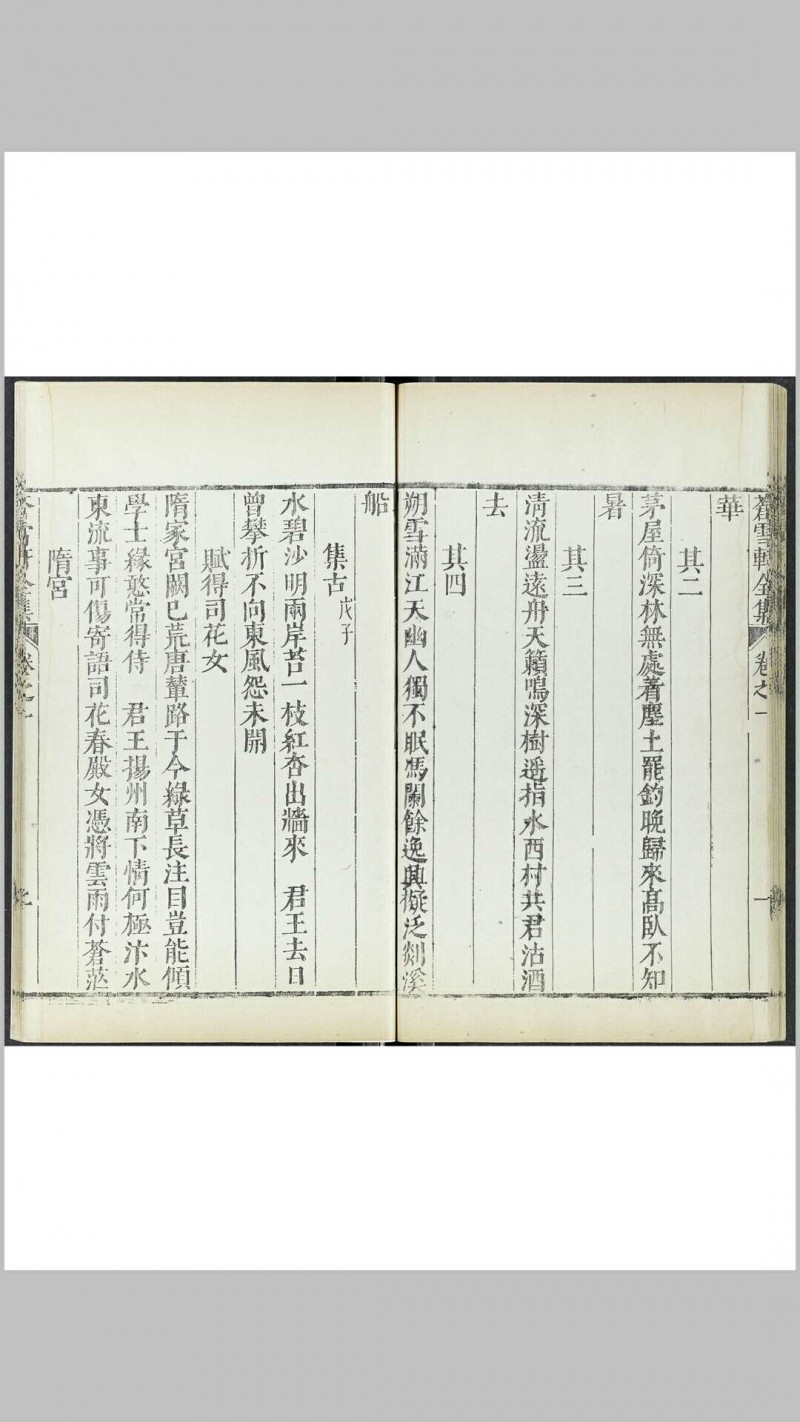 蒼雪軒全集 卷之一
華
其二
茅屋倚深林無處着塵土罷釣晚歸來高臥不知
暑
其三
清流盪遠舟天籟鳴深樹遥指水西村共君沽酒
去
其四
朔雪滿江天幽人獨不眠馮闌餘逸興擬泛剡溪
船
集古 戊子
水碧沙明兩岸苔一枝紅杏出牆來 君王去日
曾攀折不向東風怨未開
賦得司花女
隋家宮闕已荒唐輦路于今綠草長注目豈能傾
學士緣憨常得侍 君王揚州南下情何極汴水
東流事可傷寄語司花春殿女憑將雲雨付蒼茫
隋宮
全集 卷之